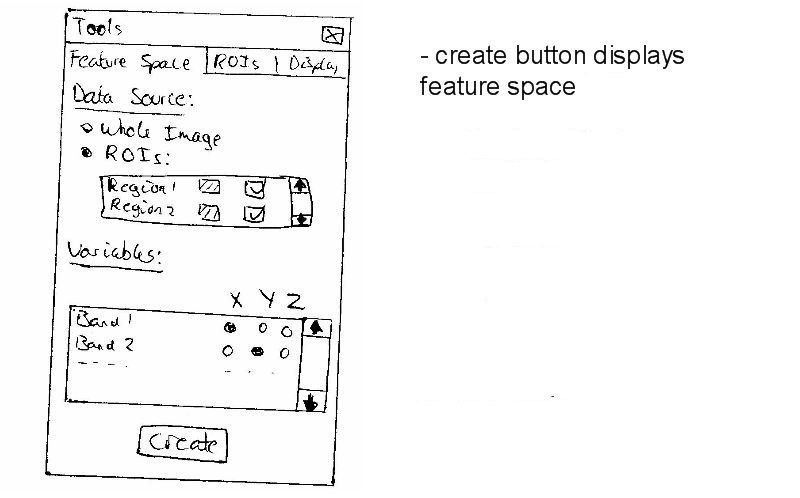 Tools
Feature Space | ROIs | Display
Data Source:
Whole Image
ROIs:
Region 1
Region 2
Variables:
X Y Z
Band 1
Band 2
Create
- create button displays
feature space